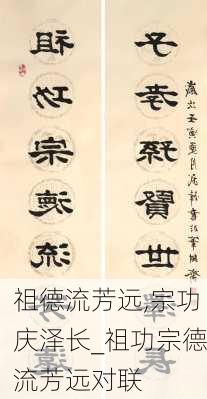 子孝孫賢世澤長
祖功宗德流芳遠
祖德流芳远,宗功
庆泽长_祖功宗德
流芳远对联